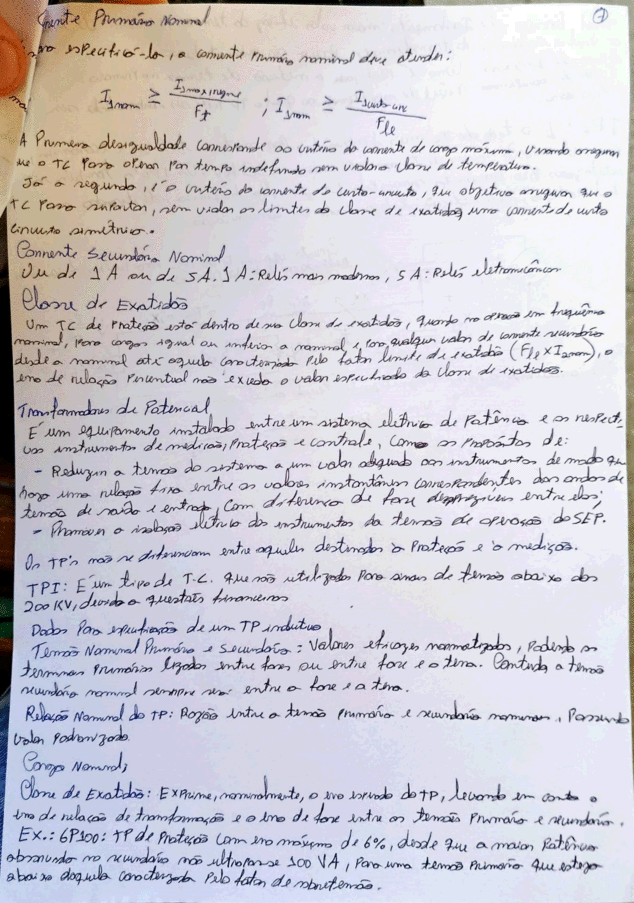 Corrente Primária Nominal
1
Para especificá-lo, a corrente primária nominal deve atender:
I1nom ≥ I1max,regime / Ft ; I1nom ≥ I1curto-circ / Fle
A Primeira desigualdade corresponde ao critério da corrente de carga máxima, visando assegurar
que o TC Possa operar por tempo indefinido sem violar a classe de temperatura.
Já a segunda, é o critério da corrente de curto-circuito, que objetiva assegurar que o
TC Possa suportar, sem violar os limites da classe de exatidão, uma corrente de curto
circuito simétrico.
Corrente Secundária Nominal
de 1A ou de 5A. 1A: Relés mais modernos, 5A: Relés eletromecânicos
Classe de Exatidão
Um TC de Proteção está dentro de sua classe de exatidão, quando na operação em frequência
nominal, para cargas igual ou inferior a nominal e, para qualquer valor de corrente secundária
desde a nominal até aquela caracterizada pelo fator limite de exatidão (Fle x I2nom), o
erro de relação Percentual não exceda o valor especificado da classe de exatidão.
Transformadores de Potencial
É um equipamento instalado entre um sistema elétrico de Potência e os respect.
vos instrumentos de medição, proteção e controle, com os propósitos de:
- Reduzir a tensão do sistema a um valor adequado aos instrumentos de modo que
haja uma relação fixa entre os valores instantâneos correspondentes das ondas de
tensão de saída e entrada, com diferença de fase desprezível entre elas;
- Promover a isolação elétrica dos instrumentos da tensão de operação do SEP.
Os TP's não se diferenciam entre aqueles destinados à Proteção e à medição.
TPI: É um tipo de T.C. que são utilizados para sinais de tensão abaixo dos
200 KV, devido a questões financeiras
Dados Para especificação de um TP indutivo
Tensão Nominal Primária e Secundária: Valores eficazes normatizados, podendo os
terminais Primários ligados entre fases ou entre fase e a terra. Contudo a tensão
secundária nominal sempre será entre a fase e a terra.
Relação Nominal do TP: Razão entre a tensão primária e secundária nominais, Possuindo
valor padronizado.
Carga Nominal;
Classe de Exatidão: Exprime, nominalmente, o erro esperado do TP, levando em conta o
erro de relação de transformação e o erro de fase entre as tensões Primária e secundária.
Ex.: 6P100: TP de Proteção com erro máximo de 6%, desde que a maior Potência
absorvida no secundário não ultrapasse 100 VA, para uma tensão Primária que esteja
abaixo daquela caracterizada pelo fator de sobretensão.